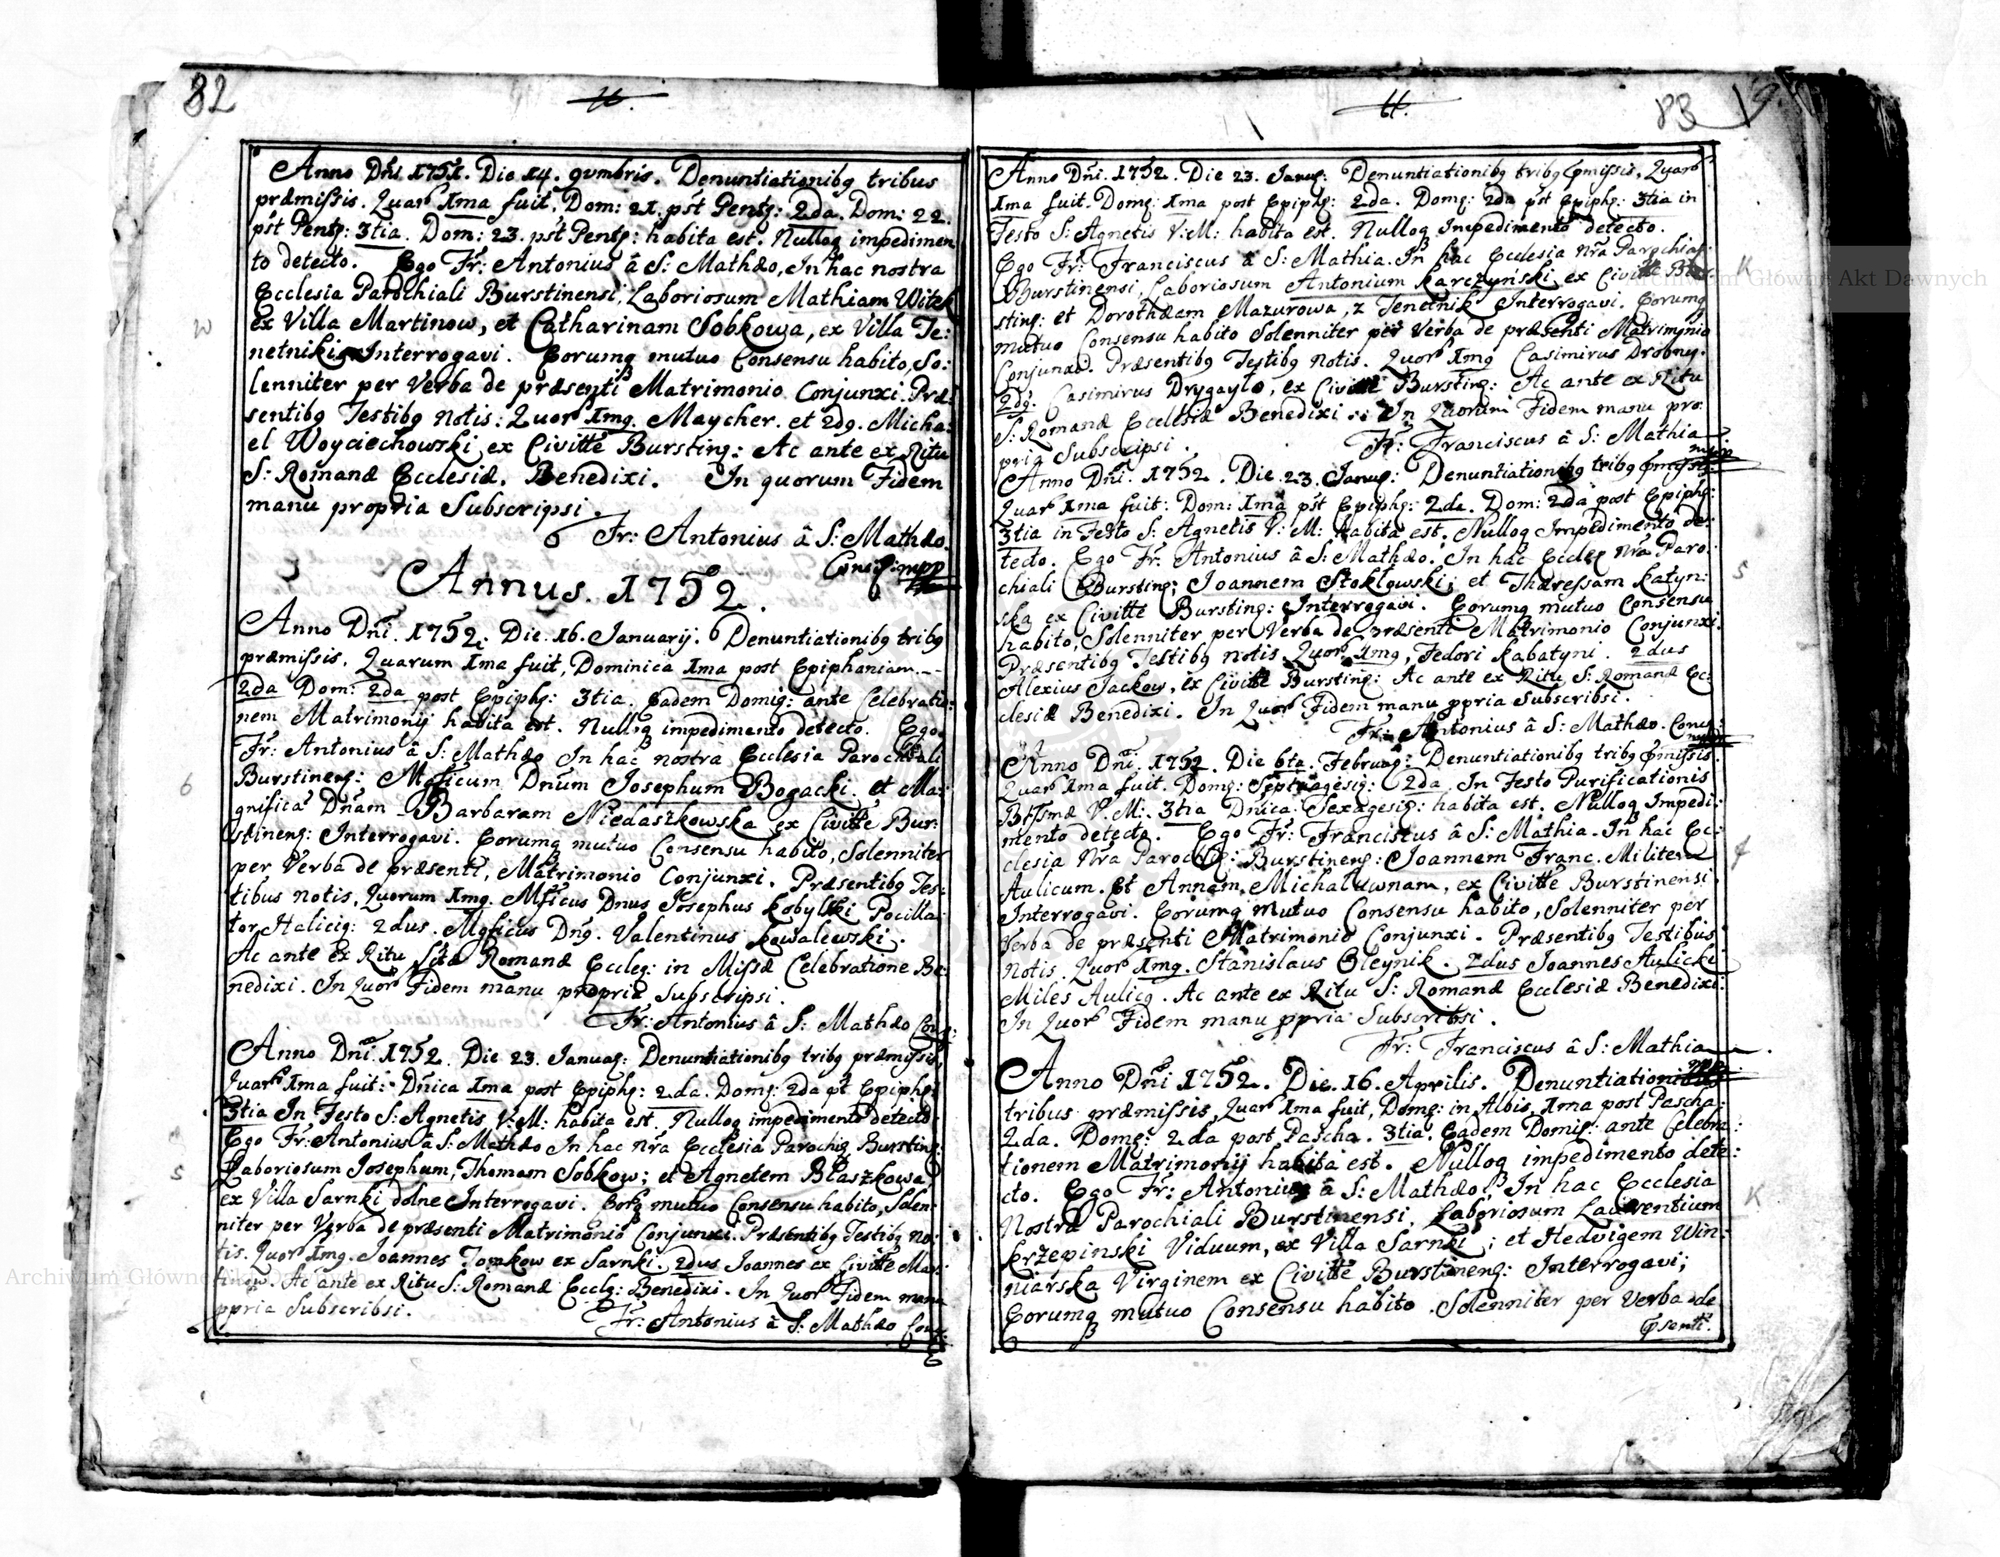 82
Anno Dñi 1751. Die 14. 9vmbris. Denuntiationibq tribus
præmissis. Quar Ima fuit, Dom: 21. pst Pentq: 2da. Dom: 22.
pst Pentq: 3tia. Dom: 23. pst Pentq: habita est. Nulloq impedimen
to detecto. Ego Fr: Antonius â S: Mathæo, In hac nostra
Ecclesia Parochiali Burstinensi, Laboriosum Mathiam Witek
ex Villa Martinow, et Catharinam Sobkowa, ex Villa Te:
netniki Interrogavi. Eorumq mutuo Consensu habito, So:
lenniter per Verba de præsenti Matrimonio Conjunxi. Præ:
sentibq Testibq notis: Quor Imq. Maycher. et 2dq. Micha:
el Woyciechowski ex Civitte Burstinq: Ac ante ex Ritu
S: Romanæ Ecclesiæ. Benedixi. In quorum Fidem
manu propria Subscripsi.
Fr: Antonius â S: Mathæo.
mpp
Annus. 1752.
Anno Dñi. 1752. Die. 16. Januarij. Denuntiationibq tribq
præmissis, Quarum Ima fuit, Dominica Ima post Epiphaniam.
2da Dom: 2da post Epiphq: 3tia. Eadem Domiq: ante Celebratio:
nem Matrimonij habita est. Nulloq impedimento detecto. Ego
Fr: Antonius â S: Mathæo In hac nostra Ecclesia Parochiali
Burstinenq: Mgficum Dnum Josephum Bogacki. et Ma:
gnifica Dnam Barbaram Niedaszkowska ex Civitte Bur:
stinenq: Interrogavi. Eorumq mutuo Consensu habito, Solenniter
per Verba de præsenti, Matrimonio Conjunxi. Præsentibq Tes:
tibus notis, Quorum Imq. Mgficus Dnus Josephus Kobylski Pocilla:
tor Haliciq: 2dus. Mgficus Dnq. Valentinus Kowalewski.
Ac ante ex Ritu Stæ Romanæ Eccleq: in Missæ Celebratione Be:
nedixi. In Quor Fidem manu propria Subscripsi.
Fr: Antonius â S: Mathæo Conq:
Anno Dñi. 1752. Die 23. Januaq: Denuntiationibq tribq præmissis,
Quar Ima fuit: Dñica Ima post Epiphq: 2.da. Domq: 2da pt Epiphq:
3tia In Festo S: Agnetis, V: M: habita est. Nulloq impedimento detecto.
Ego Fr: Antonius â S: Mathæo In hac nra Ecclesia Parochiq Burstinq:
Laboriosum Josephum, Thomam Sobkow; et Agnetem Błaszkowa,
ex Villa Sarnki dolne Interrogavi. Eorq mutuo Consensu habito, Solen:
niter per Verba de præsenti Matrimonio Conjunxi. Præsentibq Testibq no:
tis. Quor Imq. Joannes Tomkow ex Sarnki. 2dus Joannes ex Civitte Mar:
tinow. Ac ante ex Ritu S: Romanæ Ecclq: Benedixi. In Quor Fidem manu
ppria Subscribsi. Fr: Antonius â S: Mathæo Conq:
83
Anno Dñi. 1752. Die 23. Januq: Denuntiationibq tribq pmissis, Quar
Ima fuit. Domq: Ima post Epiphq: 2da. Domq: 2da pst Epiphq: 3tia in
Festo S: Agnetis V: M: habita est. Nulloq Impedimento detecto.
Ego Fr: Franciscus â S: Mathia. In hac Ecclesia nra Parochiali
Burstinensi, Laboriosum Antonium Karczyński ex Civitte Bur:
stinq: et Dorothæam Mazurowa, z Tenetnik Interrogavi. Eorumq
mutuo Consensu habito Solenniter per Verba de præsenti Matrimonio
Conjunxi. Præsentibq Testibq notis. Quor Imq Casimirus Drobny.
2dq. Casimirus Drygayło, ex Civitte Burstinq: Ac ante ex Ritu
S: Romanæ Ecclesiæ Benedixi. In Quorum Fidem manu pro
pria Subscripsi. Fr: Franciscus â S: Mathia
Anno Dñi. 1752. Die. 23. Januq: Denuntiationibq tribq pmissis:
Quar Ima fuit: Dom: Ima pst Epiphq: 2da. Dom: 2da post Epiphq:
3tia in Festo S: Agnetis V: M: habita est. Nulloq Impedimento de:
tecto. Ego Fr. Antonius â S: Mathæo. In hac Eccleq nra Paro:
chiali Burstinq: Joannem Stokłowski; et Theressam Katyn:
ska ex Civitte Burstinq: Interrogavi. Eorumq mutuo Consensu
habito, Solenniter per Verba de præsenti Matrimonio Conjunxi.
Præsentibq Testibq notis Quor Imq, Fedori Kabatyni. 2dus
Alexius Jackow, ex Civitte Burstinq: Ac ante ex Ritu S: Romanæ Ec:
clesiæ Benedixi. In Quor Fidem manu ppria Subscribsi.
Fr: Antonius â S: Mathæo. Conq:
Anno Dñi. 1752. Die 6ta. Februaq: Denuntiationibq tribq pmissis.
Quar Ima fuit. Domq: Septuagesiq: 2da In Festo Purificationis
Btssmæ V: M: 3tia Dnica: Sexagesiq: habita est. Nulloq Impedi:
mento detecto. Ego Fr: Franciscus â S: Mathia. In hac Ec:
clesia Nra Parochiq: Burstinenq: Joannem Franc. Militem
Aulicum. Et Annam Michałownam, ex Civitte Burstinensi
Interrogavi. Eorumq mutuo Consensu habito, Solenniter per
Verba de præsenti Matrimonio Conjunxi. Præsentibq Testibus
Notis. Quor Imq. Stanislaus Oleynik. 2dus Joannes Aulicki
Miles Aulicq. Ac ante ex Ritu S: Romanæ Ecclesiæ Benedixi:
In Quor Fidem manu ppria Subscribsi.
Fr: Franciscus â S: Mathia
Anno Dñi 1752. Die. 16. Aprilis. Denuntiationibq
tribus præmissis, Quar Ima fuit, Domq: in Albis, Ima post Pascha:
2.da. Domq: 2da post Pascha. 3tia. Eadem Domiq: ante Celebra:
tionem Matrimonij habita est. Nulloq impedimento dete:
cto. Ego Fr: Antonius â S: Mathæo. In hac Ecclesia
Nostra Parochiali Burstinensi, Laboriosum Laurentium
Krzepinski Viduum, ex Villa Sarnki; et Hedvigem Win:
niarska Virginem ex Civitte Burstinenq: Interrogavi;
Eorumq mutuo Consensu habito. Solenniter per Verba de
psenti.
Archiwum Główne Akt Dawnych